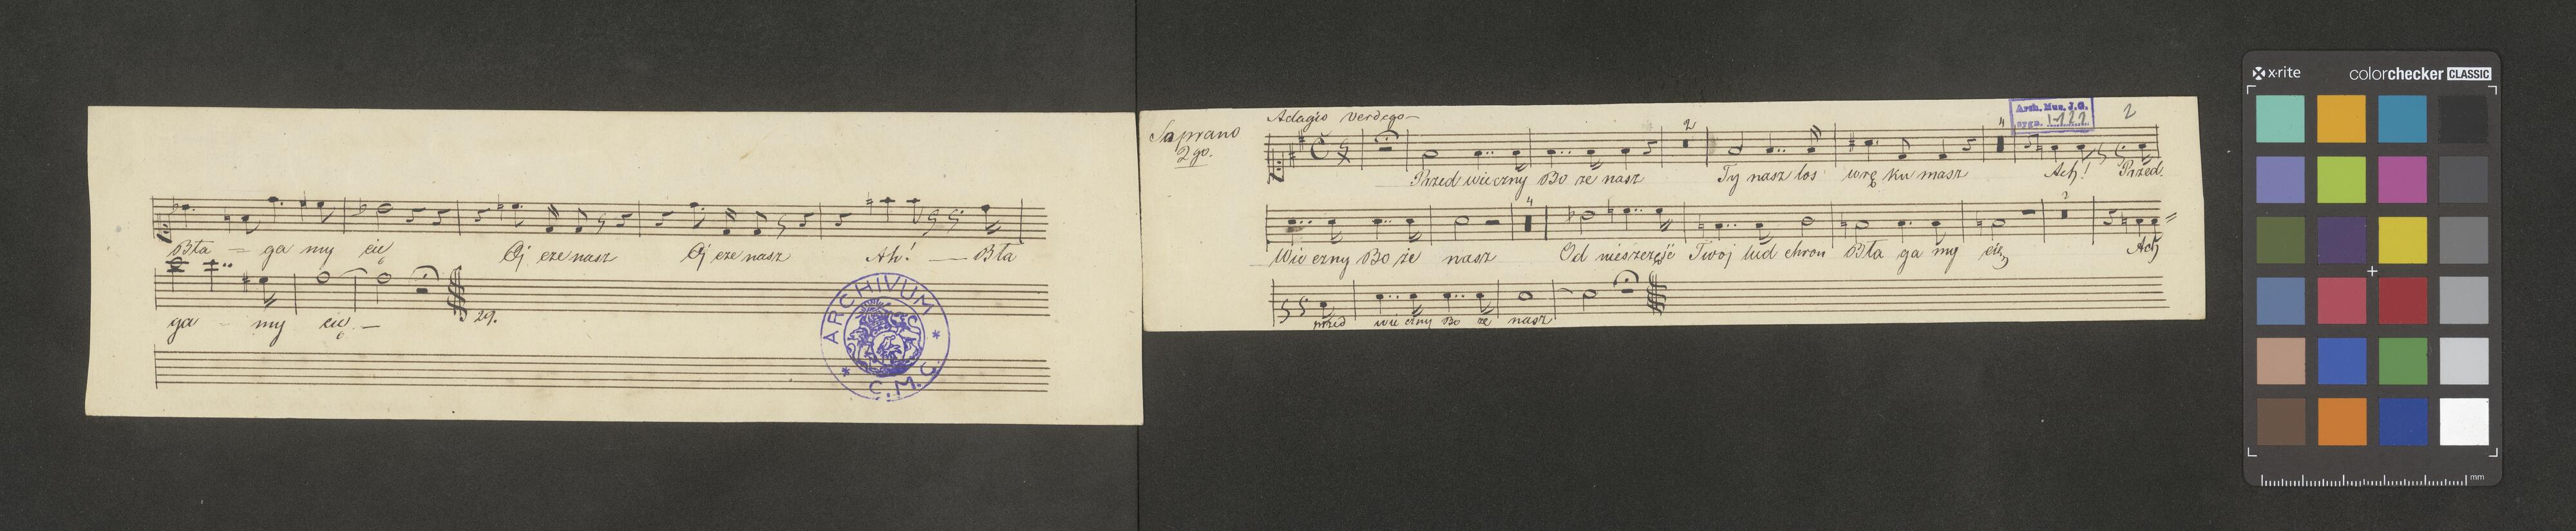 Bła - ga my cie Oj cze nasz Oj cze nasz Ah! - Bła
ga - my cie -
29.
ARCHIVUM * C.M.G. *
Soprano
2go.
Adagio
Arch. Mus. J.G.
sygn. I-122
2
2
4
Przed wieczny Bo że nasz Ty nasz los w rę ku masz Ach! Przed
4
2
Wie czny Bo że nasz Od nieszczęść Twój lud chroń Bła ga my cię Ach
przed wie czny Bo że nasz
x-rite
colorchecker CLASSIC
mm